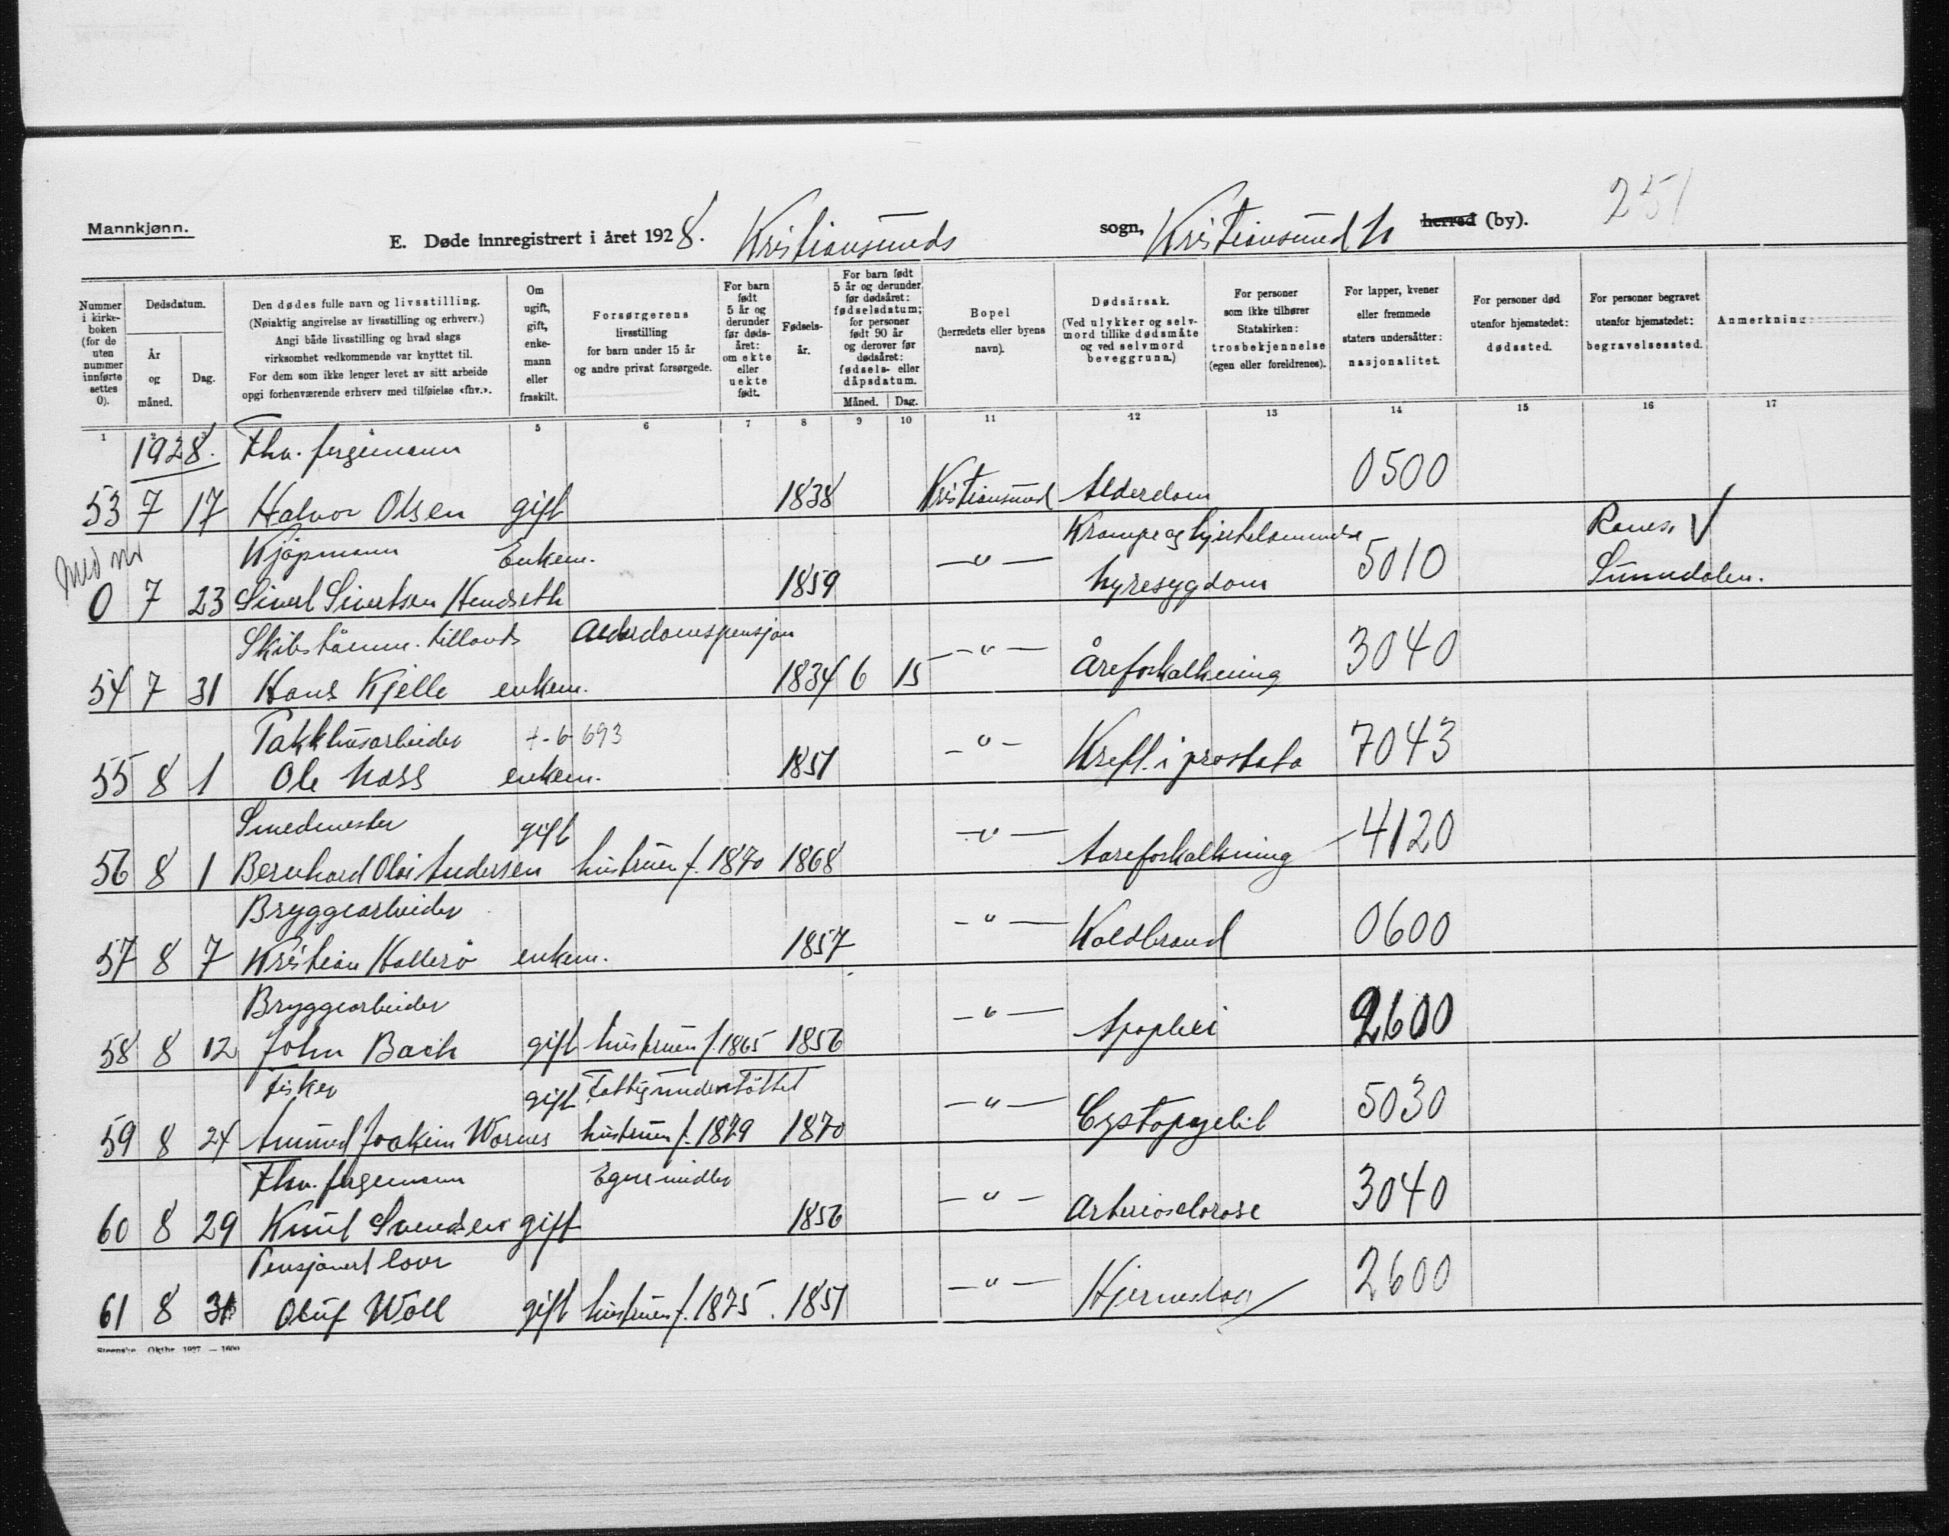 251
Mannkjønn.
E. Døde innregistrert i året 1928. Kristiansunds sogn, Kristiansund N herred (by).
Nummer i kirkeboken (for de uten nummer innførte settes 0).
Dødsdatum.
År og måned.
Dag.
Den dødes fulle navn og livsstilling. (Nøiaktig angivelse av livsstilling og erhverv.) Angi både livsstilling og hvad slags virksomhet vedkommende var knyttet til. For dem som ikke lenger levet av sitt arbeide opgi forhenværende erhverv med tilføielse «fhv.».
Om ugift, gift, enkemann eller fraskilt.
Forsørgerens livsstilling for barn under 15 år og andre privat forsørgede.
For barn født 5 år og derunder før dødsåret: om ekte eller uekte født.
Fødselsår.
For barn født 5 år og derunder før dødsåret: fødselsdatum; for personer født 90 år og derover før dødsåret: fødsels- eller dåpsdatum.
Måned. Dag.
Bopel (herredets eller byens navn).
Dødsårsak. (Ved ulykker og selvmord tillike dødsmåte og ved selvmord beveggrunn.)
For personer som ikke tilhører Statskirken: trosbekjennelse (egen eller foreldrenes).
For lapper, kvener eller fremmede staters undersåtter: nasjonalitet.
For personer død utenfor hjemstedet: dødssted.
For personer begravet utenfor hjemstedet: begravelsessted.
Anmerkning
1 4 5 6 7 8 9 10 11 12 13 14 15 16 17
1928. Fhv. fergemann
53 7 17 Halvor Olsen gift 1838 Kristiansund Alderdom 0500
Med nr
Kjøpmann Enkem. Krampe og hjertelammelse Ranes √
0 7 23 Sivert Sivertsen Hendseth 1859 —"— hyresygdom 5010 Sunndalen.
Skibstømm. tillands Alderdomspensjon
54 7 31 Hans Kjelle enkem. 1834 6 15 —"— Åreforkalkning 3040
Pakkhusarbeider +-6 693
55 8 1 Ole Nass enkem. 1851 —"— Kreft i prostata 7043
Smedmester gift
56 8 1 Bernhard Olai Andersen hustruen f. 1870 1868 —"— Aareforkalkning 4120
Bryggearbeider
57 8 7 Kristian Hallerø enkem. 1857 —"— Koldbrand 0600
Bryggearbeider
58 8 12 John Bach gift hustruen f. 1865 1856 —"— Apoplexi 2600
Fisker gift Fattigunderstøttet
59 8 24 Amund Joakim Warnes hustruen f. 1879 1870 —"— Cystopyelit 5030
Fhv. fergemann Egne midler
60 8 29 Knut Svendsen gift 1856 —"— Arteriosclorose 3040
Pensjonert lov
61 8 31 Oluf Woll gift hustruen f. 1875. 1851 —"— Hjerneslag 2600
Steenske. Oktbr. 1927. — 1600